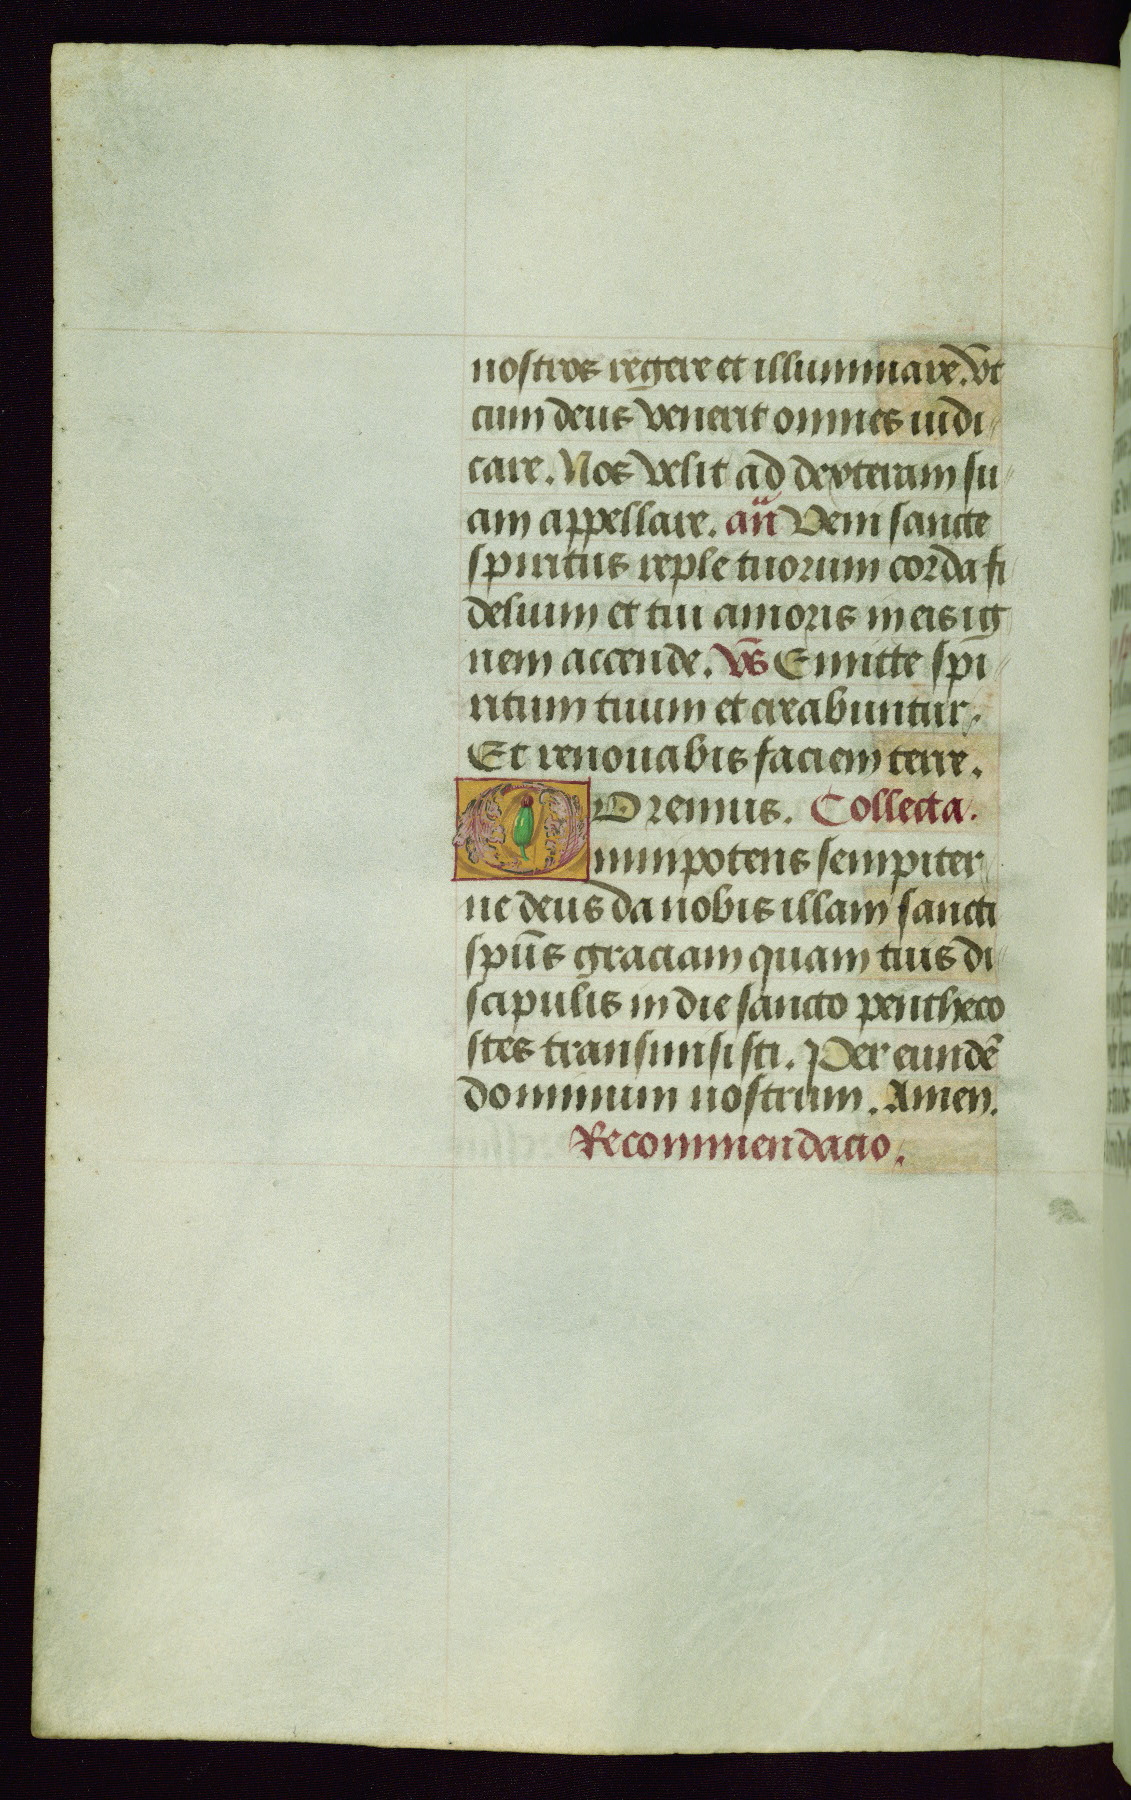 nostros regere et illuminare. Vt
cum deus venerit omnes iudi
care. Nos velit ad dexteram su
am appellare. an̄ Veni sancte
spiritus reple tuorum corda fi
delium et tui amoris in eis ig
nem accende. Vs̄ Emitte spi
ritum tuum et creabuntur.
Et renouabis faciem terre.
Oremus. Collecta.
Omnipotens sempiter
ne deus da nobis illam sancti
spūs graciam quam tuis di
scipulis in die sancto pentheco
stes transmisisti. Per eundē
dominum nostrum. Amen.
Recommendacio.